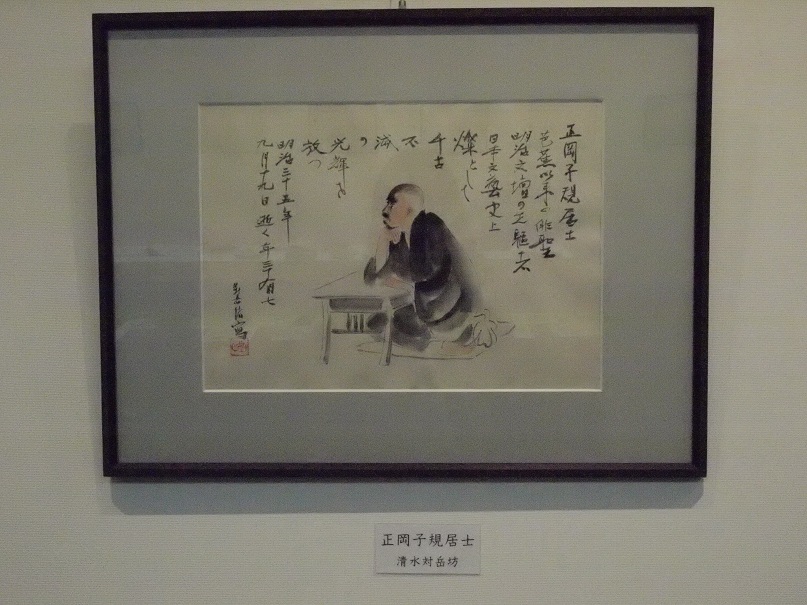 正岡子規居士
芭蕉以来の俳聖
明治文壇の
日本文藝史上
燦として
千古
不
滅
の
光輝を
放つ
明治三十五年
九月十九日逝く年三十七
正岡子規居士
清水対岳坊